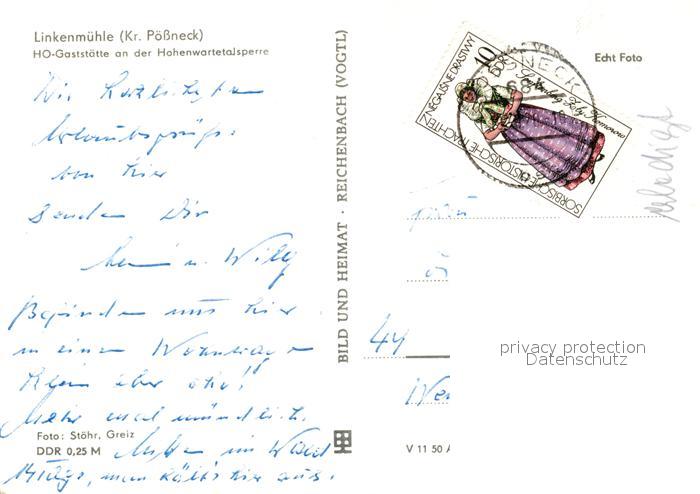 Linkenmühle (Kr. Pößneck)
HO-Gaststätte an der Hohenwartetalsperre
Die herzlichsten
Urlaubsgrüße
von hier
senden Dir
u. Willy
Befinden uns hier
in einen Wohnwagen
Klein aber oho!!
Mehr mal mündlich.
Mitten im Wald
man hält's hier aus.
Foto: Stöhr, Greiz
DDR 0,25 M
BILD UND HEIMAT · REICHENBACH (VOGTL)
Echt Foto
10
DDR
NEGAJSNE DRASTWY
SORBISCHE HISTORISCHE TRACHTEN
NECK
erledigt
Frau
44
V 11 50 A
privacy protection
Datenschutz